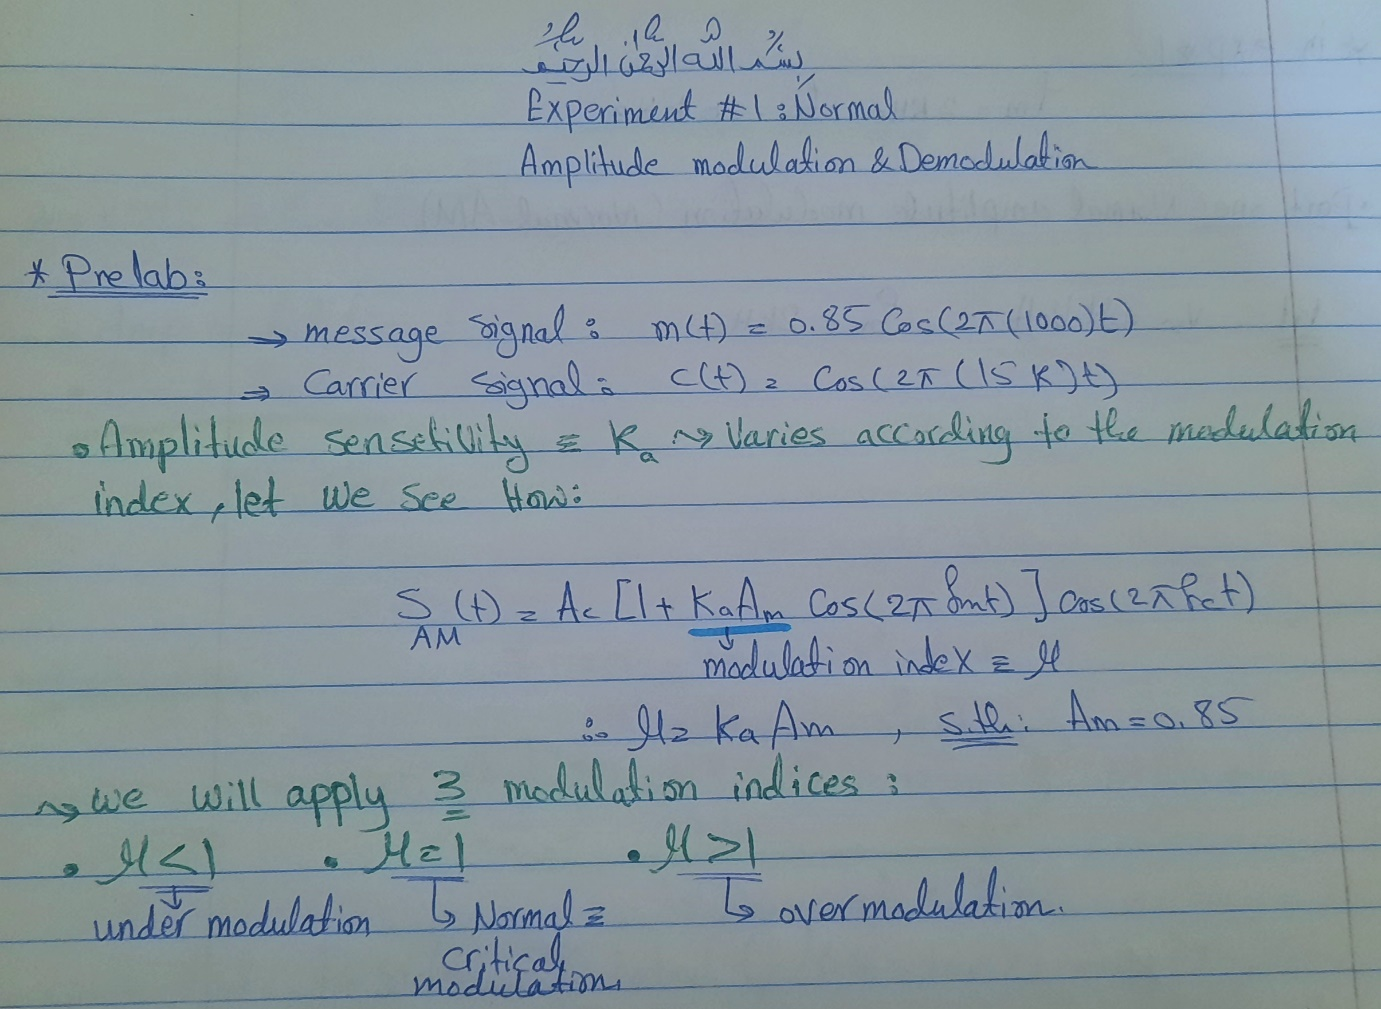 بسم الله الرحمن الرحيم
Experiment #1: Normal
Amplitude modulation & Demodulation
* Prelab:
→ message signal: m(t) = 0.85 Cos(2π(1000)t)
⇒ Carrier signal: c(t) = Cos(2π(15K)t)
• Amplitude sensetivity ≡ Ka ⇝ Varies according to the modulation
index, let we see How:
S_AM(t) = Ac [1 + KaAm Cos(2π fmt)] cos(2π fct)
↓
modulation index ≡ μ
∴ μ = Ka Am , s.th: Am = 0.85
⇝ we will apply 3 modulation indices :
• μ<1 • μ=1 • μ>1
under modulation ↳ Normal ≡ ↳ over modulation.
critical
modulation.